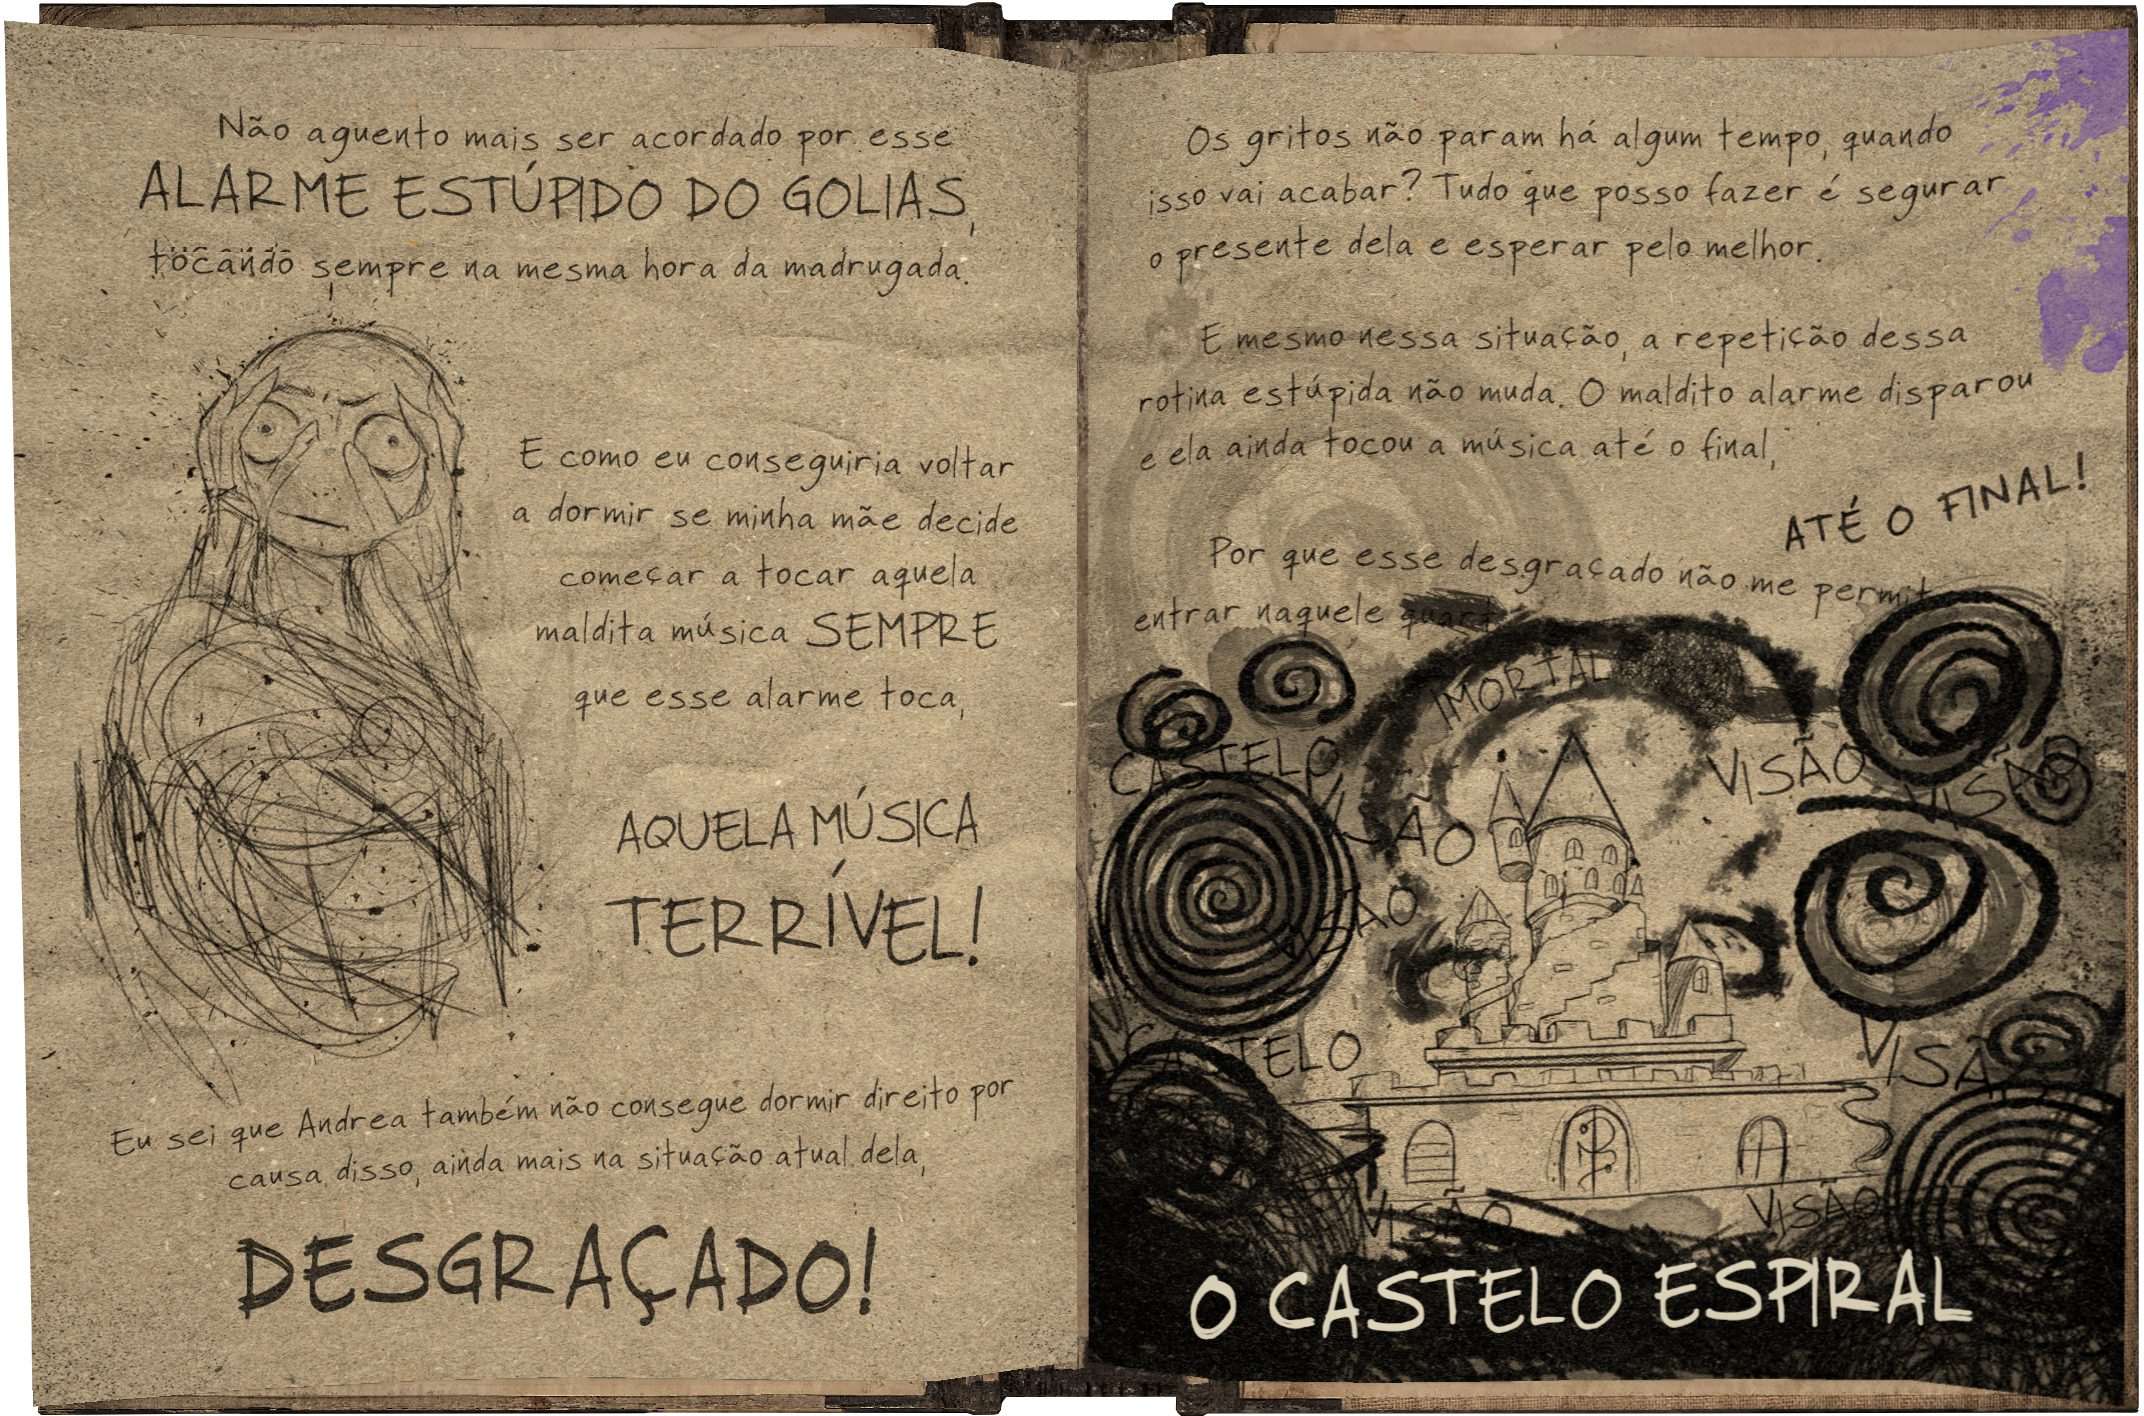 Não aguento mais ser acordado por esse
ALARME ESTÚPIDO DO GOLIAS,
tocando sempre na mesma hora da madrugada.
E como eu conseguiria voltar
a dormir se minha mãe decide
começar a tocar aquela
maldita música SEMPRE
que esse alarme toca,
AQUELA MÚSICA
TERRÍVEL!
Eu sei que Andrea também não consegue dormir direito por
causa disso, ainda mais na situação atual dela,
DESGRAÇADO!
Os gritos não param há algum tempo, quando
isso vai acabar? Tudo que posso fazer é segurar
o presente dela e esperar pelo melhor.
E mesmo nessa situação, a repetição dessa
rotina estúpida não muda. O maldito alarme disparou
e ela ainda tocou a música até o final,
ATÉ O FINAL!
Por que esse desgraçado não me permit
entrar naquele quart
IMORTAL
CASTELO
VISÃO
VISÃO
VISÃO
VISÃO
CASTELO
VISÃO
VISÃO
VISÃO
O CASTELO ESPIRAL